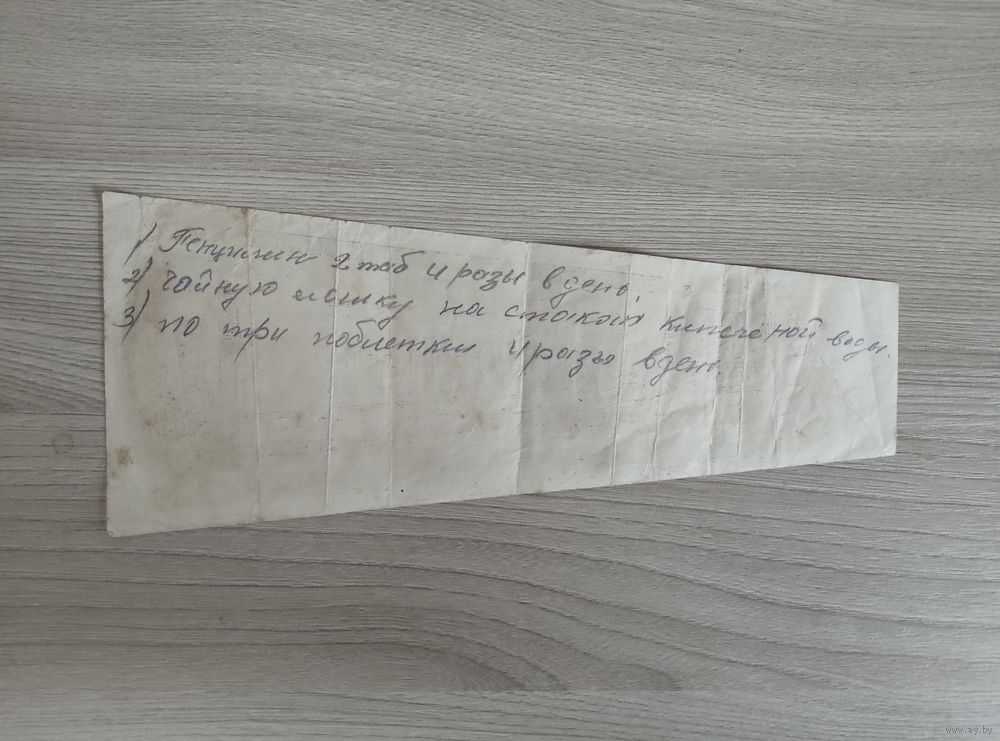 1) Пенцилин 2 таб 4 разы в день.
2) чайную лошку на стакан кипечёной воды.
3) по три таблетки 4 разы в день.
www.ay.by